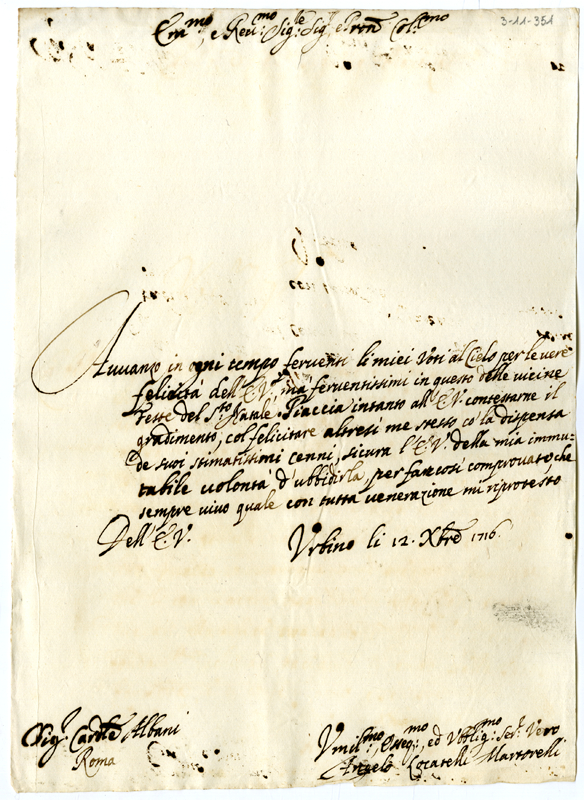 3-11-351
Em.mo, e Rev.mo Sig.re Sig.re e Pron Col.mo
Avvanzo in ogni tempo ferventi li miei Voti al Cielo per le vere
felicità dell'E.V. mà ferventissimi in questo delle vicine
feste del S.to Natale. Piaccia intanto all'E.V. contestarne il
gradimento, col felicitare altresì me stesso cò la dispensa
de suoi stimatissimi cenni, sicura l'E.V. della mia immu-
tabile volontà d'ubbidirla, per farcosi comprovate, che
sempre vivo quale con tutta venerazione mi riprotesto
Dell'E.V. Urbino li 12. Xbre 1716.
Sig.r Card.le Albani
Roma
Umil.mo, Osseq.mo, ed Obblig.mo Ser.r Vero
Angelo Locatelli Martorelli